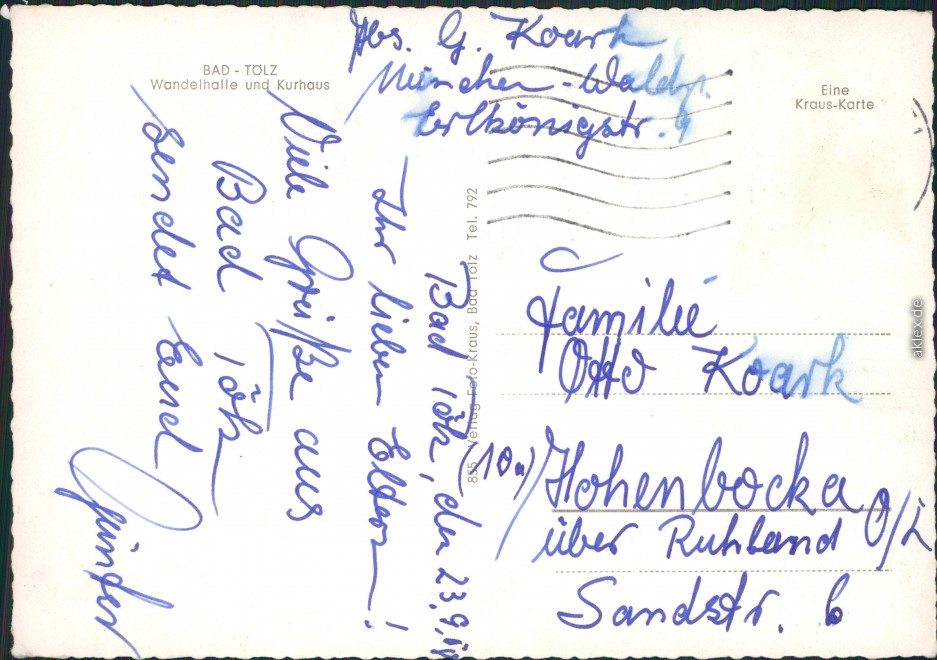 BAD - TÖLZ
Wandelhalle und Kurhaus
Abs. G. Koark
München-Waldp.
Erlkönigstr. 9
Eine
Kraus-Karte
Bad Tölz, den 23.9.
Ihr lieben Eltern!
Viele Grüße aus
Bad Tölz
sendet Euch
Günter
855 Verlag Foto-Kraus, Bad Tölz Tel. 792
Familie
Otto Koark
(10a) Hohenbocka
über Ruhland O/L
Sandstr. 6
aklex.de